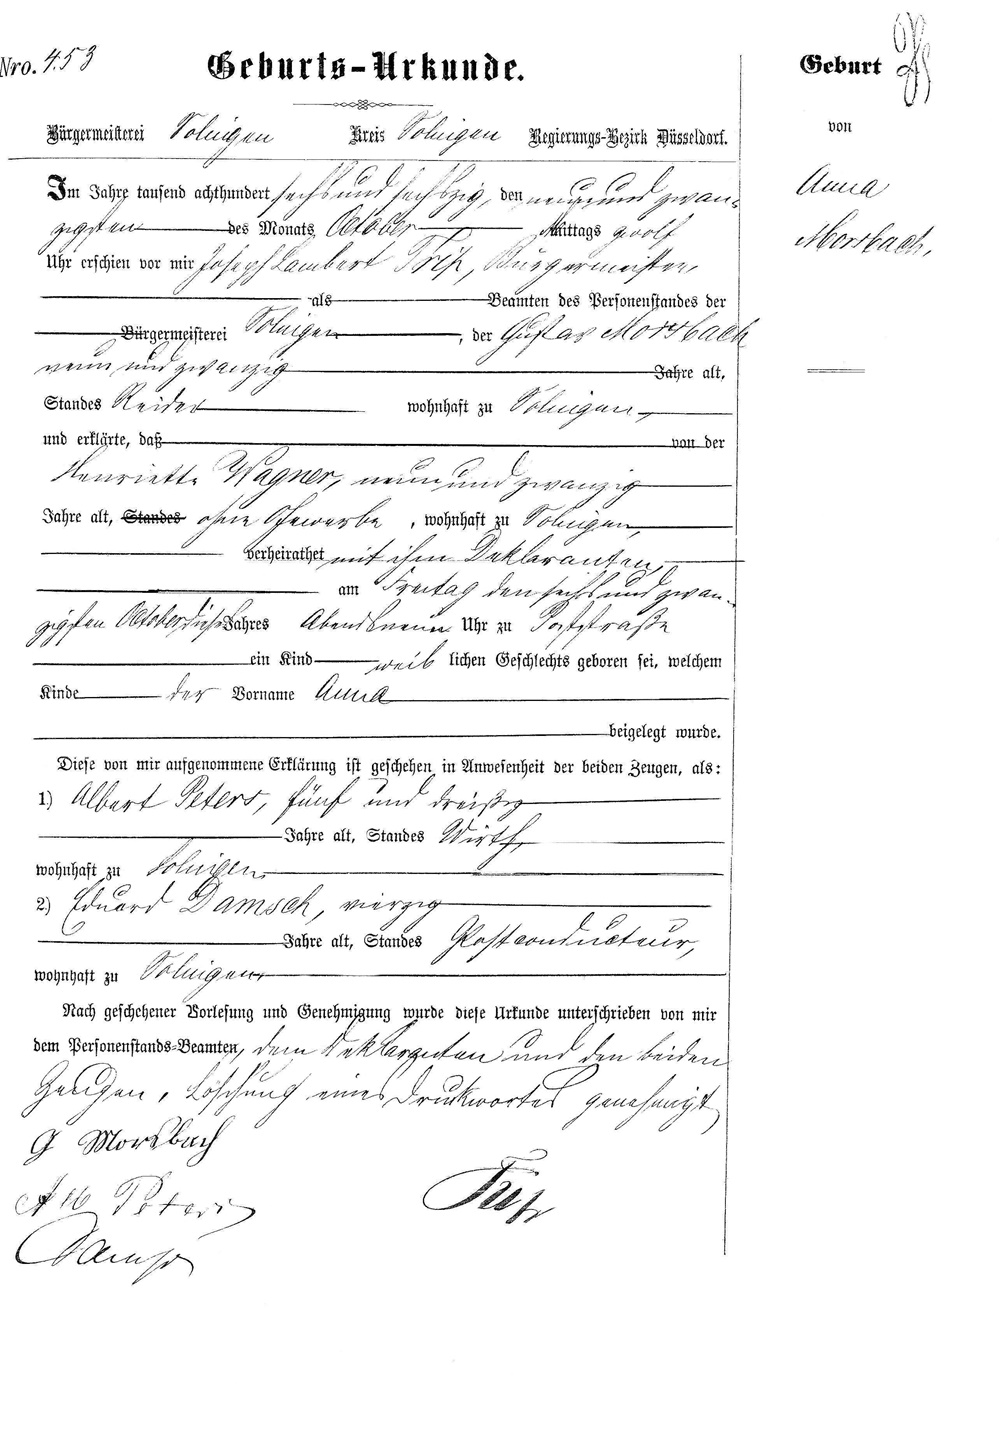 Nro. 453
Geburts-Urkunde.
Bürgermeisterei Solingen Kreis Solingen Regierungs-Bezirk Düsseldorf.
Im Jahre tausend achthundert sechs und sechszig, den neun und zwan-
zigsten des Monats October Mittags zwölf
Uhr erschien vor mir Joseph Lambert Trip, Bürgermeister,
als Beamten des Personenstandes der
Bürgermeisterei Solingen, der Gustav Morsbach
neun und zwanzig Jahre alt,
Standes Reider wohnhaft zu Solingen,
und erklärte, daß von der
Henriette Wagner, neun und zwanzig
Jahre alt, Standes ohne Gewerbe, wohnhaft zu Solingen,
verheirathet mit ihm Deklaranten,
am Freitag den sechs und zwan-
zigsten October dieses Jahres Abends neun Uhr zu Poststraße
ein Kind weiblichen Geschlechts geboren sei, welchem
Kinde der Vorname Anna
beigelegt wurde.
Diese von mir aufgenommene Erklärung ist geschehen in Anwesenheit der beiden Zeugen, als:
1) Albert Peters, fünf und dreißig
Jahre alt, Standes Wirth,
wohnhaft zu Solingen,
2) Eduard Damsch, vierzig
Jahre alt, Standes Postconducteur,
wohnhaft zu Solingen,
Nach geschehener Vorlesung und Genehmigung wurde diese Urkunde unterschrieben von mir
dem Personenstands-Beamten, dem Deklaranten und den beiden
Zeugen, Löschung eines Druckwortes genehmigt
G Morsbach
Alb Peters
Trip
Geburt
von
Anna
Morsbach,